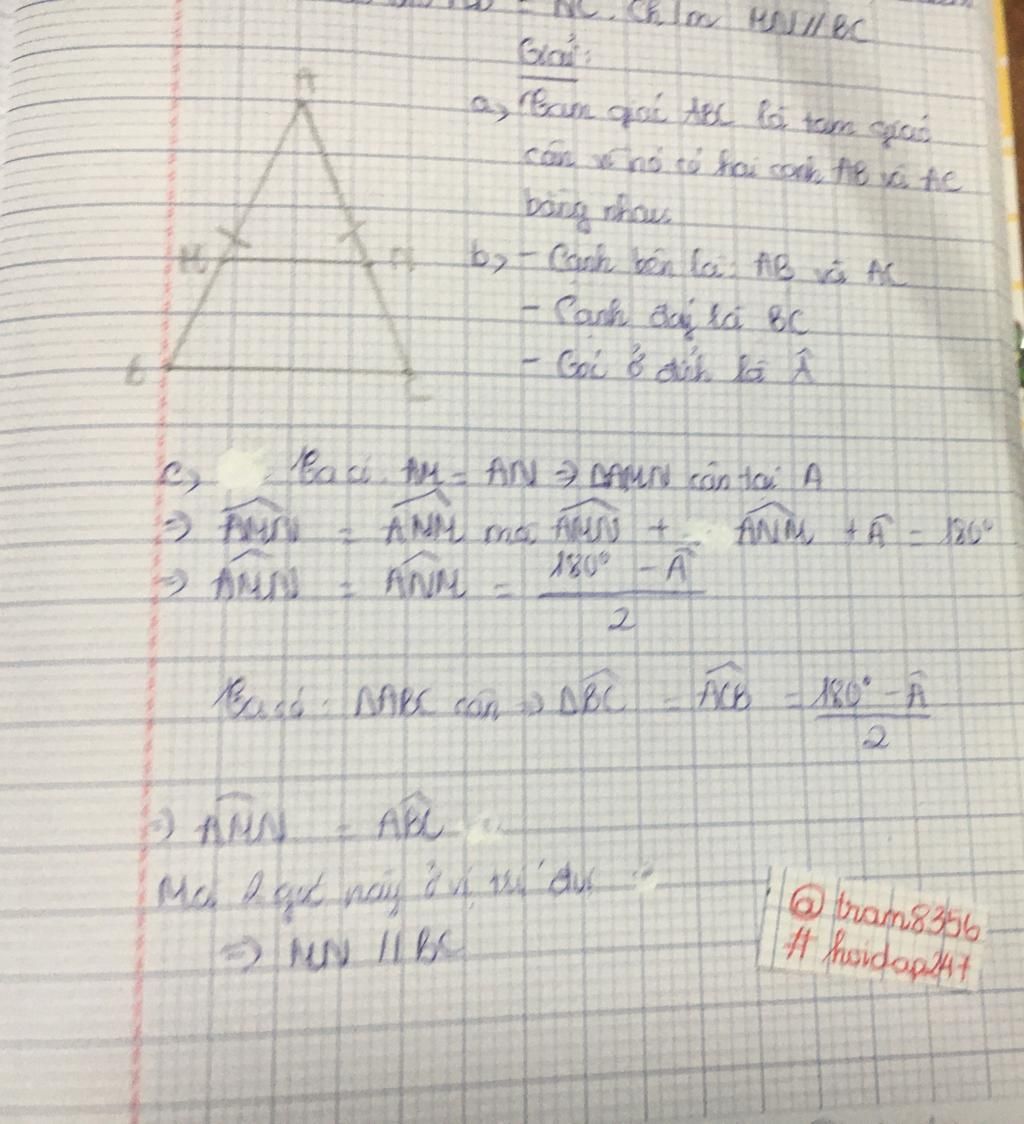 = NC. Ch/m MN//BC
Giải:
a, Tam giác ABC là tam giác
cân vì nó có hai cạnh AB và AC
bằng nhau.
b, - Cạnh bên là: AB và AC
- Cạnh đáy là BC
- Góc ở đỉnh là Â
A
M
N
B
C
c, Ta có. AM = AN ⇒ ΔAMN cân tại A
⇒ \widehat{AMN} = \widehat{ANM} mà \widehat{AMN} + \widehat{ANM} + Â = 180°
⇒ \widehat{AMN} = \widehat{ANM} = (180° - Â)/2
Ta có: ΔABC cân ⇒ \widehat{ABC} = \widehat{ACB} = (180° - Â)/2
⇒ \widehat{AMN} = \widehat{ABC}
Mà 2 góc này ở vị trí
⇒ MN // BC
@tram8356
# hoidap247